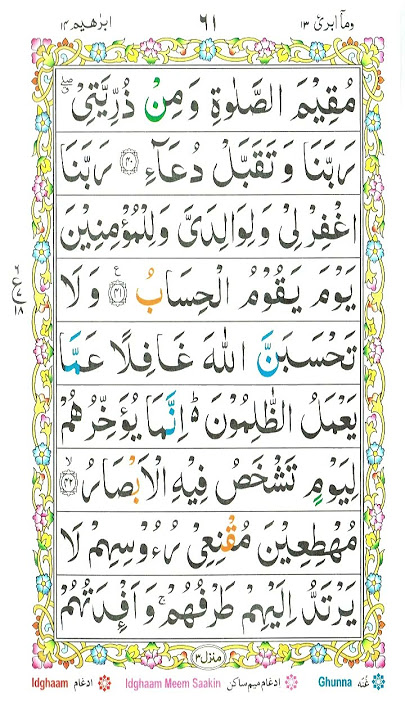 ابرٰهيم ١٤ ٦١ ومآ ابرئ ١٣
مُقِيْمَ الصَّلٰوةِ وَمِنْ ذُرِّيَّتِيْ ۖ ق
رَبَّنَا وَتَقَبَّلْ دُعَآءِ ﴿۴۰﴾ رَبَّنَا
اغْفِرْ لِيْ وَلِوَالِدَيَّ وَلِلْمُؤْمِنِيْنَ
يَوْمَ يَقُوْمُ الْحِسَابُ ﴿۴۱﴾ ع وَلَا
تَحْسَبَنَّ اللّٰهَ غَافِلًا عَمَّا
يَعْمَلُ الظّٰلِمُوْنَ ؕ اِنَّمَا يُؤَخِّرُهُمْ
لِيَوْمٍ تَشْخَصُ فِيْهِ الْاَبْصَارُ ﴿۴۲﴾ ۙ
مُهْطِعِيْنَ مُقْنِعِيْ رُءُوْسِهِمْ لَا
يَرْتَدُّ اِلَيْهِمْ طَرْفُهُمْ ۚ وَاَفْـِٕدَتُهُمْ
٦ ع ٧ ١٨
منزل ٣
Idghaam ادغام Idghaam Meem Saakin ادغام ميم ساكن Ghunna غنّه